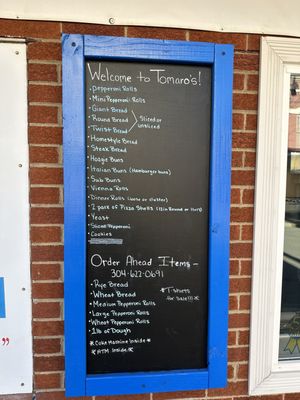 Welcome to Tomaro's!
• Pepperoni Rolls
• Mini Pepperoni Rolls
• Giant Bread
• Round Bread
• Twist Bread
Sliced or
Unsliced
• Homestyle Bread
• Steak Bread
• Hoagie Buns
• Italian Buns (Hamburger buns)
• Sub Buns
• Vienna Rolls
• Dinner Rolls (loose or cluster)
• 2 pack of Pizza Shells (12in Round or
• Yeast
• Sliced Pepperoni
• Cookies
Order Ahead Items -
304-622-0691
• Rye Bread
• Wheat Bread
• Medium Pepperoni Rolls
• Large Pepperoni Rolls
• Wheat Pepperoni Rolls
• 1 lb of Dough
* T-shirts
for Sale!!! *
* Coke Machine Inside *
* ATM Inside *
"